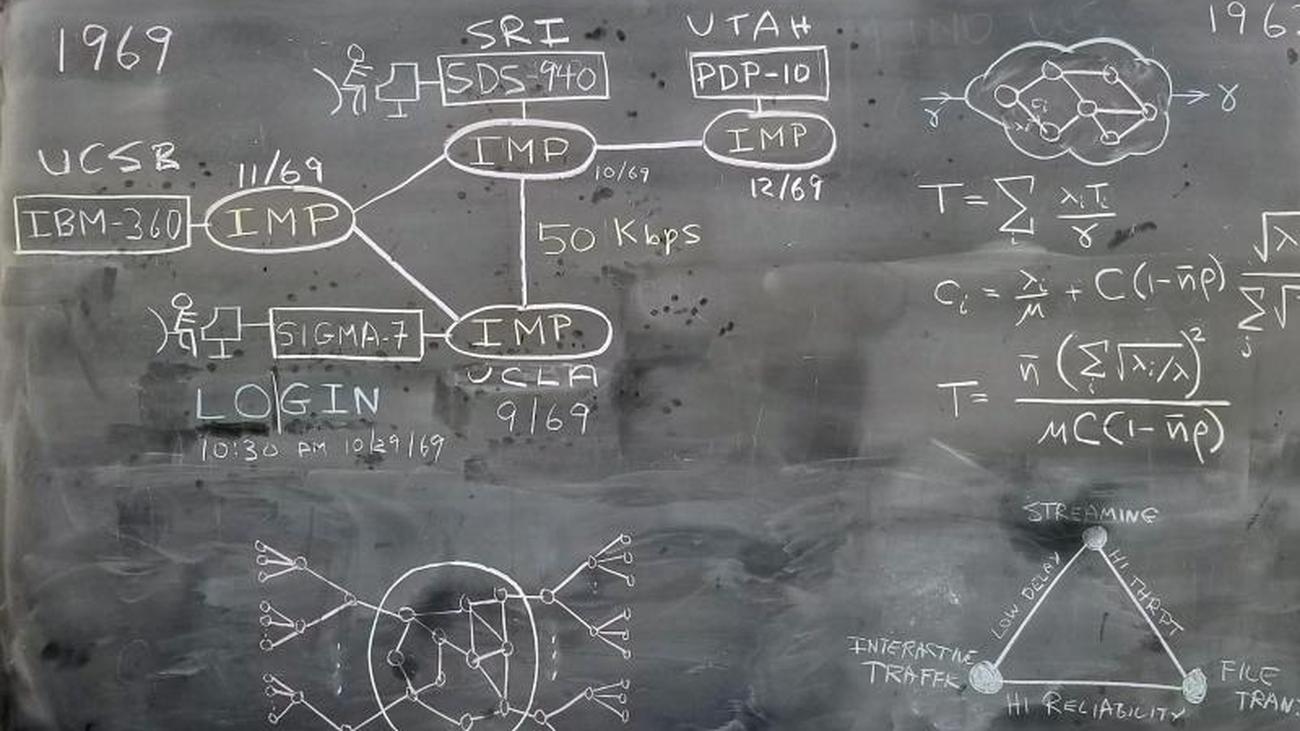 1969
SRI
SDS-940
IMP
10/69
UTAH
PDP-10
IMP
12/69
UCSB
11/69
IBM-360
IMP
50 Kbps
SIGMA-7
IMP
UCLA
9/69
LO|GIN
10:30 PM 10/29/69
196
γ
γ
T = Σ_i λ_i T_i / γ
C_i = λ_i / μ + C(1 - n̄ρ) √λ / Σ_j √
T = n̄ (Σ_i √λ_i/λ)² / μC(1 - n̄ρ)
STREAMING
LOW DELAY
HI THRPT
INTERACTIVE
TRAFFK
HI RELIABILITY
FILE
TRANS